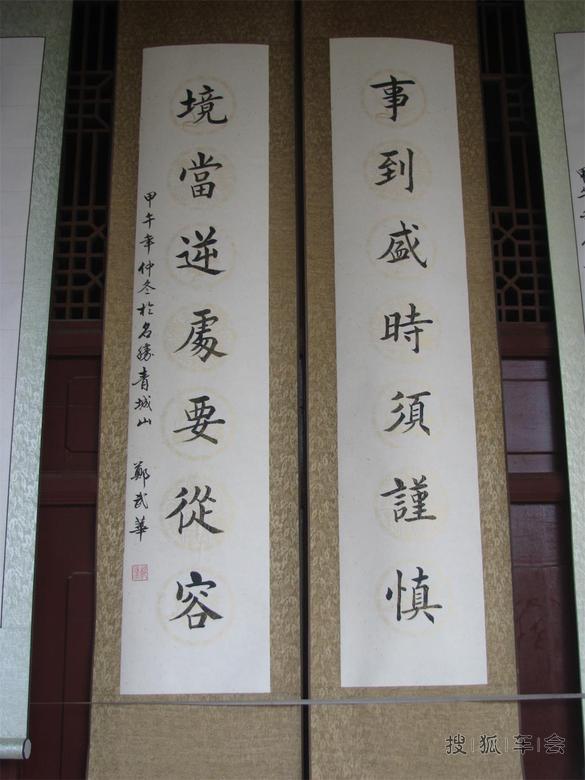 事到盛時須謹慎
境當逆處要從容
甲午年仲冬於名勝青城山 鄭武華
搜狐车会